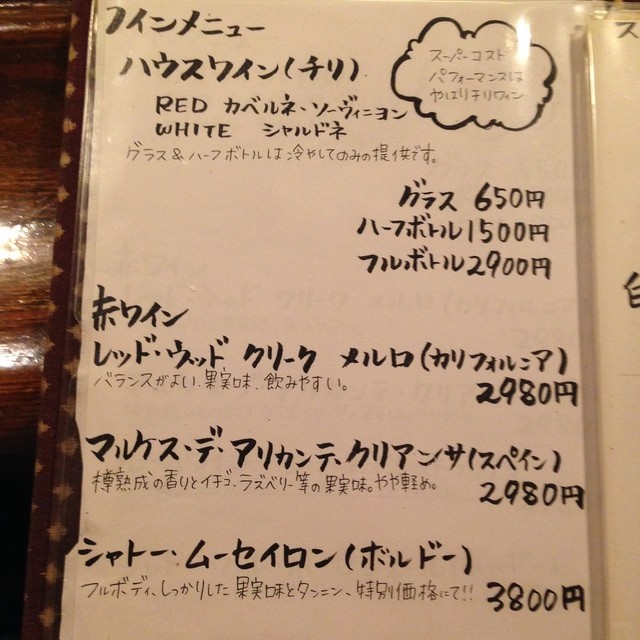 ワインメニュー
ハウスワイン(チリ)
スーパーコスト
パフォーマンスは
やはりチリワイン
RED カベルネ・ソーヴィニヨン
WHITE シャルドネ
グラス&ハーフボトルは冷やしてのみの提供です。
グラス 650円
ハーフボトル1500円
フルボトル2900円
赤ワイン
レッド・ウッド クリーク メルロ(カリフォルニア)
バランスがよい果実味、飲みやすい。
2980円
マルケス・デ・アリカンテ、クリアンサ(スペイン)
樽熟成の香りとイチゴ、ラズベリー等の果実味。やや軽め。
2980円
シャトー・ムーセイロン(ボルドー)
フルボディ、しっかりした果実味とタンニン、特別価格にて!!
3800円
ス
白